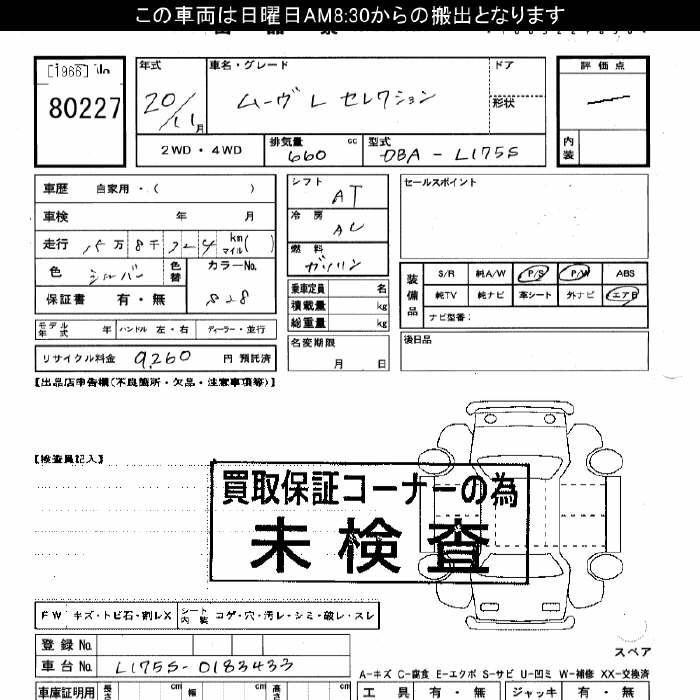 この車両は日曜日AM8:30からの搬出となります
[1966] No
80227
年式
20/11月
車名・グレード
ムーヴ L セレクション
ドア
形状
評価点
内装
2WD・4WD
排気量 660 cc
型式 DBA-L175S
車歴 自家用・( )
車検 年 月
走行 15万8千324 km マイル( )
色 シルバー 色替
カラーNo. S28
保証書 有・無
モデル年式 年 ハンドル 左・右 ディーラー・並行
リサイクル料金 9,260 円 預託済
シフト AT
冷房 AC
燃料 ガソリン
乗車定員 名
積載量 kg
総重量 kg
名変期限
月 日
セールスポイント
装備品
S/R 純A/W P/S P/W ABS
純TV 純ナビ 革シート 外ナビ エアB
ナビ型番:
後日品
【出品店申告欄(不良箇所・欠品・注意事項等)】
【検査員記入】
買取保証コーナーの為
未検査
FW キズ・トビ石・割レX シート内装 コゲ・穴・汚レ・シミ・破レ・スレ
登録No.
車台No. L175S-0183433
スペア
A-キズ C-腐食 E-エクボ S-サビ U-凹ミ W-補修 XX-交換済
車庫証明用 長さ cm 幅 cm 高さ cm
工具 有・無 ジャッキ 有・無